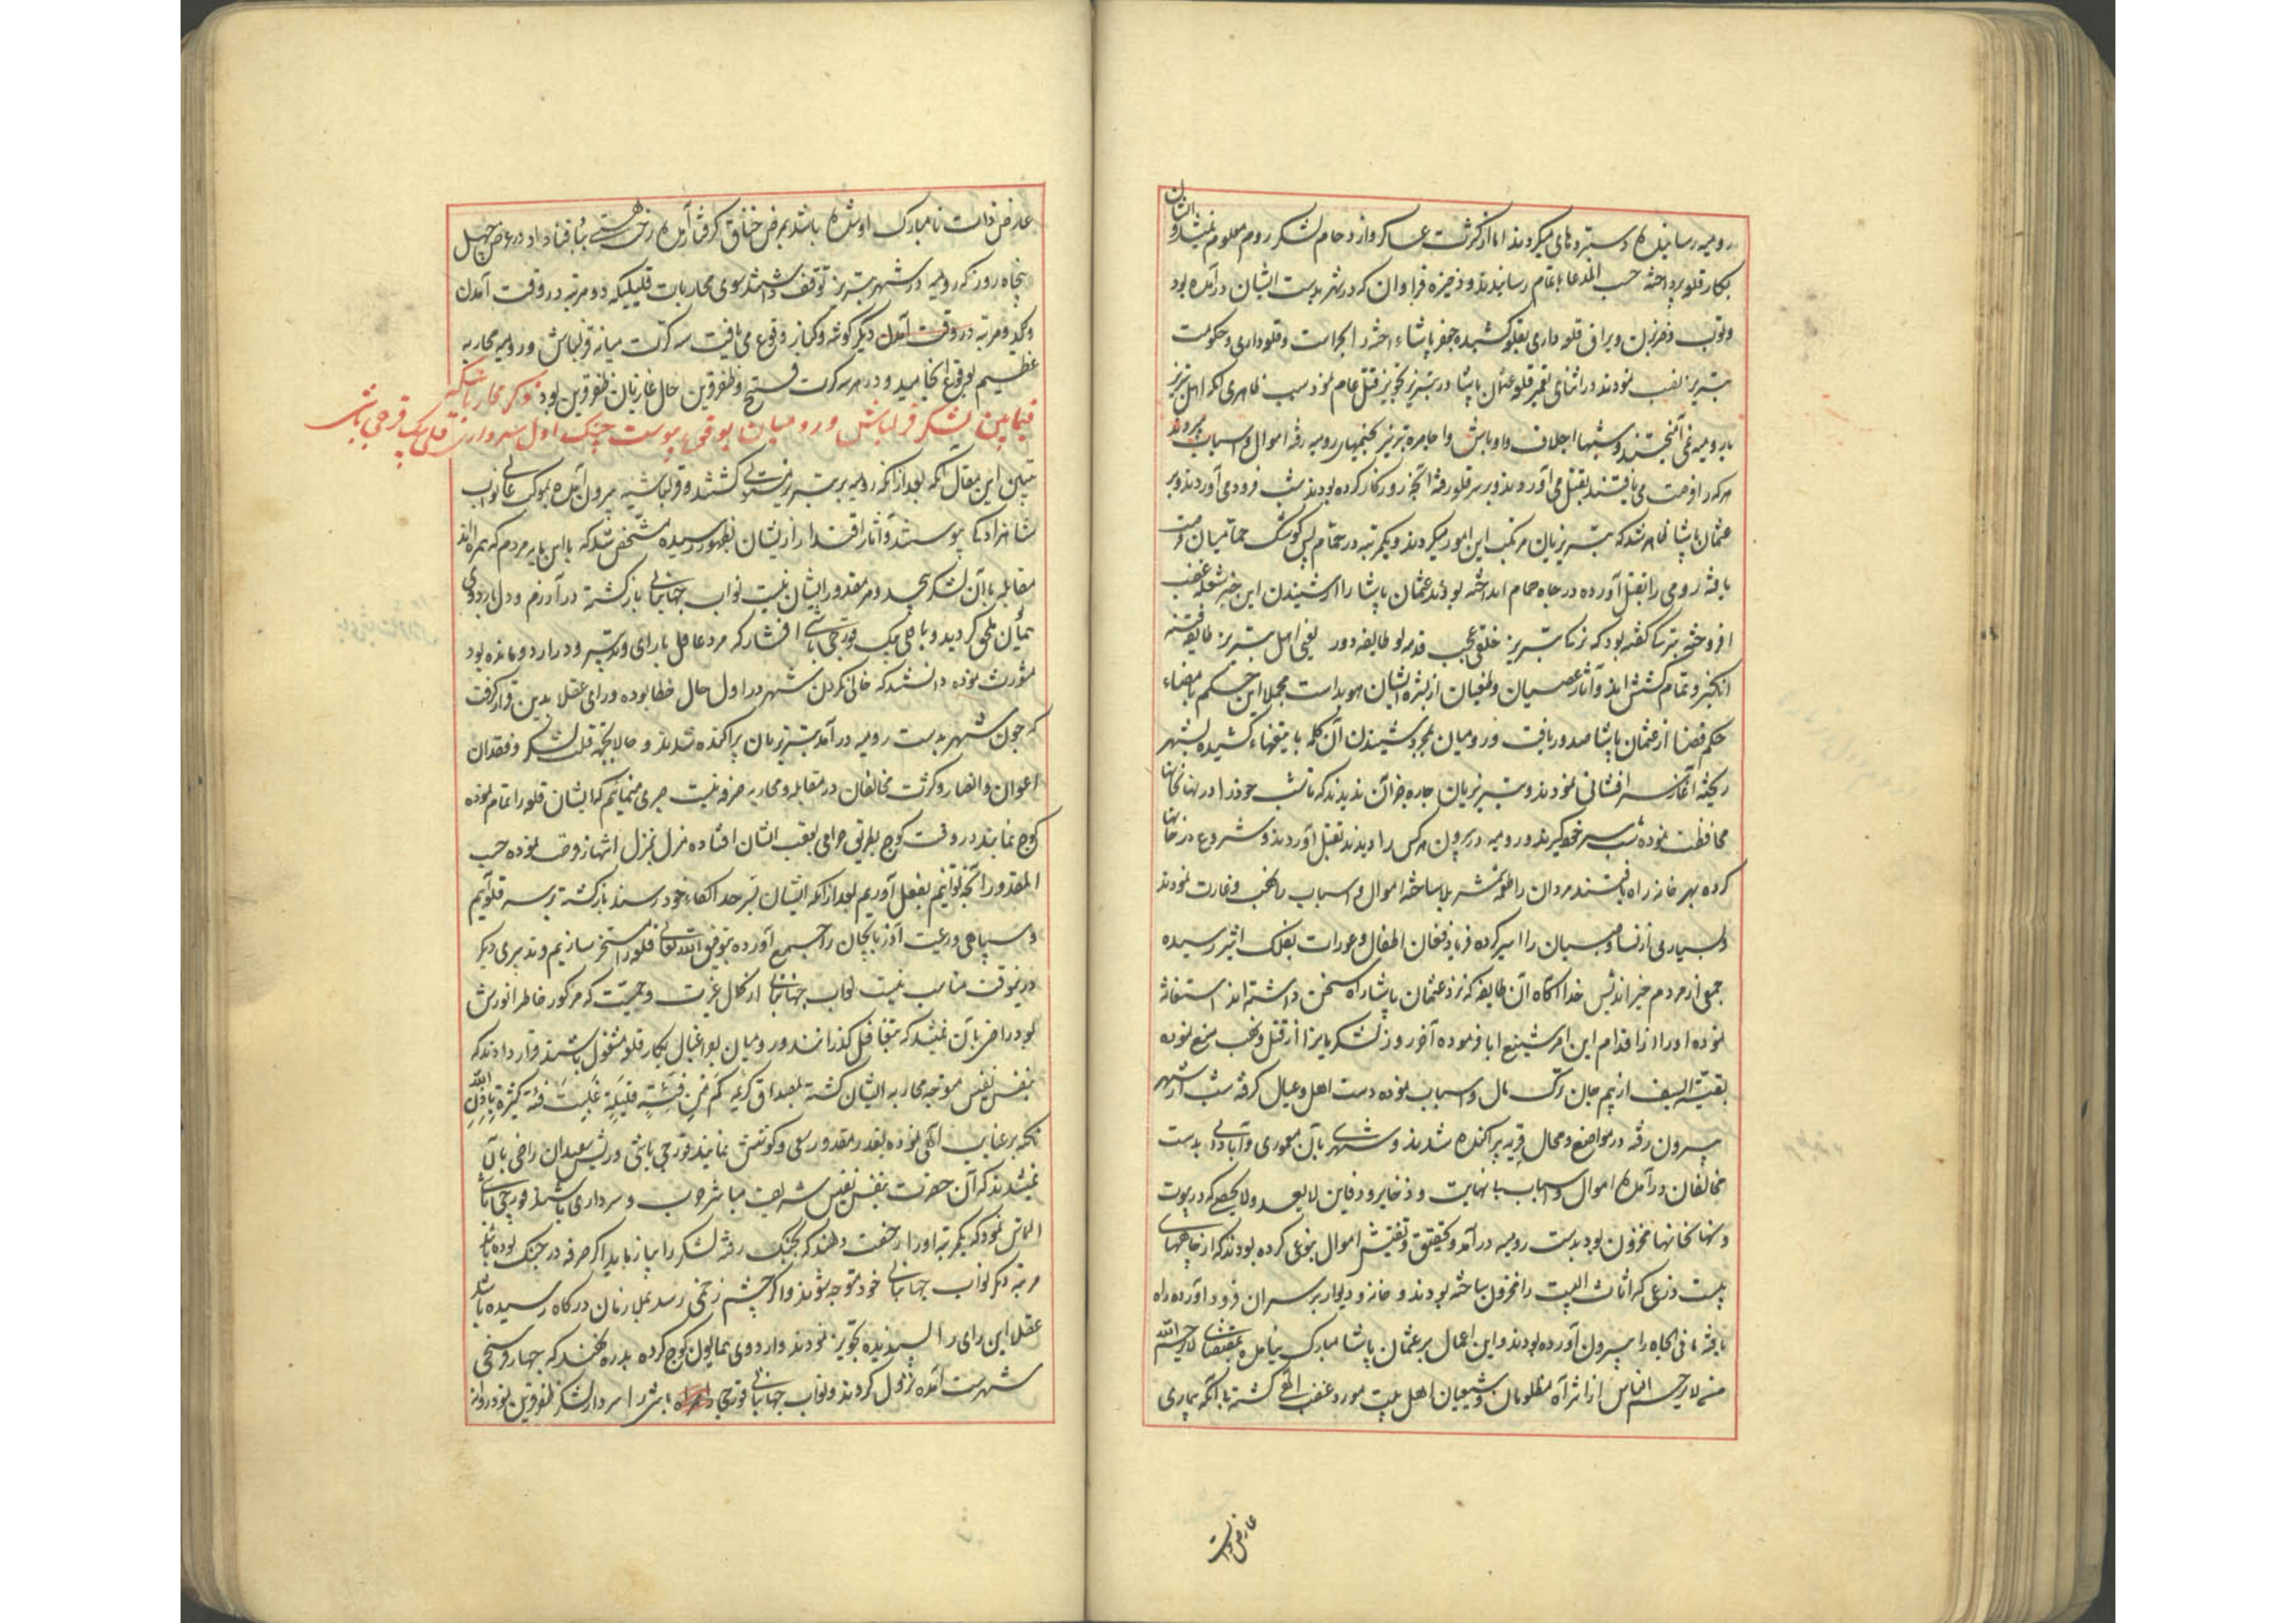 ایشان
رومیه رسانیده دستبردهای میکردند اما از کثرت عساکر و ازدحام لشکر روم معلوم نمیشد و
بکار قلعه پرداخته حسب المدعا باتمام رسانیدند و ذخیره فراوان که در شهر بدست ایشان درآمده بود
و توپ و ضربزن و یراق قلعه داری بقلعه کشیده جعفر پاشاء اخته را بحراست و قلعه داری و حکومت
تبریز نصب نمودند در اثنای تعمیر قلعه عثمان پاشا در تبریز تجویز قتل عام نمود سبب ظاهری آنکه اهل تبریز
با رومیه نمی آمیختند و شبها اجلاف و اوباش و اجامره تبریز بخیمهای رومیه رفته اموال و اسباب میبردند
هرکه را فرصت می یافتند بقتل می آوردند و بر سر قلعه رفته آنچه روز کار کرده بودند شب فرود می آوردند و بر
عثمان پاشا ظاهر شد که تبریزیان مرتکب این امور میکردند و یکمرتبه در حمام پس کوشک حمامیان فرصت
یافته رومی را بقتل آورده در چاه حمام انداخته بودند عثمان پاشا را از شنیدن این خبر شعله غضب
افروخته بترکی گفته بود که تبریز خلقی عجب طایفه دور یعنی اهل تبریز طایفه فتنه
انگیز و تمام کشتنی اند و آثار عصیان و طغیان از بشره ایشان هویداست مجملا این حکم با مضاء
حکم قضا از عثمان پاشا صدور یافت و رومیان بمجرد شنیدن آن کلمه با تیغهاء کشیده بشهر
ریخته آغاز سرافشانی نمودند و تبریزیان چاره جز آن ندیدند که تا شب خود را در نهانخانها
محافظت نموده شب سر خود گیرند و رومیه در بیرون هرکس را دیدند بقتل آوردند و شروع در خانها
کرده بهر خانه راه یافتند مردان را طعمه شمشیر بلا ساخته اموال و اسباب را نهب و غارت نمودند
و بسیاری از نسا و صبیان را اسیر کرده فریاد و فغان اطفال و عورات بفلک اثیر رسیده
جمعی از مردم خیراندیش خدا آگاه آن طایفه که نزد عثمان پاشا راه سخن داشته اند استغاثه
نموده او را از اقدام این امر شنیع ابا فرموده آخر روز لشکریانرا از قتل و نهب منع نموده
بقیة السیف از بیم جان ترک مال و اسباب نموده دست اهل و عیال گرفته شب از شهر
بیرون رفته در مواضع و محال قریه پراکنده شدند و شهری بآن معموری و آبادانی بدست
مخالفان درآمده اموال و اسباب بانهایت و ذخایر و دفاین لایعد ولایحصی که در بیوت
و نهانخانها مخزون بود بدست رومیه درآمد و تحقیق و تفتیش اموال بنوعی کرده بودند که از چاههای
بیست ذرعی که اثاث البیت را مخزون ساخته بودند و خانه و دیوار بر سر آن فرود آورده راه
یافته مافی الچاه را بیرون آورده بودند و این اعمال بر عثمان پاشا مبارک نیامده بمقتضای لایرحم الله
من لایرحم الناس از اثر آه مظلومان و شیعیان اهل بیت مورد غضب الهی گشته با آنکه بیماری
عارض ذات
عارض ذات نامبارک او شده باشد بمرض خناق گرفتار آمده رخت هستی بباد فنا داد و در عرض چهل
پنجاه روز که رومیه در شهر تبریز توقف داشتند سوی محاربات قلیلکه دو مرتبه در وقت آمدن
و یکدو مرتبه در وقت آمدن دیگر گوشه و کنار وقوع می یافت سه کرت میانه قزلباش و رومیه محاربه
عظیم بوقوع انجامید و در هر سه کرت فتح و ظفر قرین حال غازیان ظفر قرین بود ذکر محارباتیکه
فیمابین لشکر قزلباش و رومیان بوقوع پیوست جنک اول بسرداری قلی بیک قورچی باشی
تبیین این مقال آنکه بعد از آنکه رومیه بر تبریز مستولی گشتند و قزلباشیه بیرون آمده بموکب عالی نواب
شاهزادگی پیوستند و آثار اقتدار از ایشان بظهور رسیده مشخص شد که با این مایه مردم که همراه اند
مقابله با آن لشکر بیحد و مر مقدور ایشان نیست نواب جهانبانی بازگشته در آورزم ودل باردوی
همایون ملحق گردید و با قلی بیک قورچی باشی افشار که مرد عاقل با رای و تدبیر و در اردو مانده بود
مشورت نموده دانستند که خالی کردن شهر در اول حال خطا بوده و رای عقلا بدین قرار گرفت
که چون شهر بدست رومیه درآمد تبریزیان پراکنده شدند و حالا بجهة قلت لشکر و فقدان
اعوان و انصار و کثرت مخالفان در مقابله و محاربه صرفه نیست صبری مینمائیم که ایشان قلعه را تمام نموده
کوچ نمایند در وقت کوچ بطریق حرامی بعقب ایشان افتاده منزل بمنزل انتهاز فرصت نموده حسب
المقدور آنچه توانیم بفعل آوریم بعد از آنکه ایشان بسرحد الکاء خود رسند بازگشته بر سر قلعه آئیم
و سپاهی و رعیت آذربایجان را جمع آورده بتوفیق الله تعالی قلعه را مسخر سازیم و تدبیری دیگر
درینوقت مناسب نیست نواب جهانبانی از کمال غیرت و حمیت که مرکوز خاطر انورش
بود راضی بآن نمیشد که بتغافل گذرانند و رومیان بفراغبال بکار قلعه مشغول باشند قرار دادند که
بنفس نفیس متوجه محاربه ایشان گشته بمصداق کریمه کم من فئة قلیلة غلبت فئة کثیرة باذن الله
تکیه بر عنایت الهی نموده بقدر مقدور سعی و کوشش نمایند قورچی باشی و ریش سفیدان راضی بآن
نمیشدند که آن حضرت بنفس نفیس شریف مباشر حرب و سرداری باشند قورچی باشی
التماس نمود که یکمرتبه او را رخصت دهند که بجنک رفته لشکر را بیازماید اگر صرفه در جنک بوده باشد
مرتبه دیگر نواب جهانبانی خود متوجه شوند و اگر چشم زخمی رسد بملازمان درگاه رسیده باشد
عقلا این رای را پسندیده تجویز نمودند و اردوی همایون کوچ کرده بدره فهسفند که چهار فرسخی
شهرست آمده نزول کردند و نواب جهانبانی قورچی باشی را سردار لشکر ظفر قرین نمود روانه